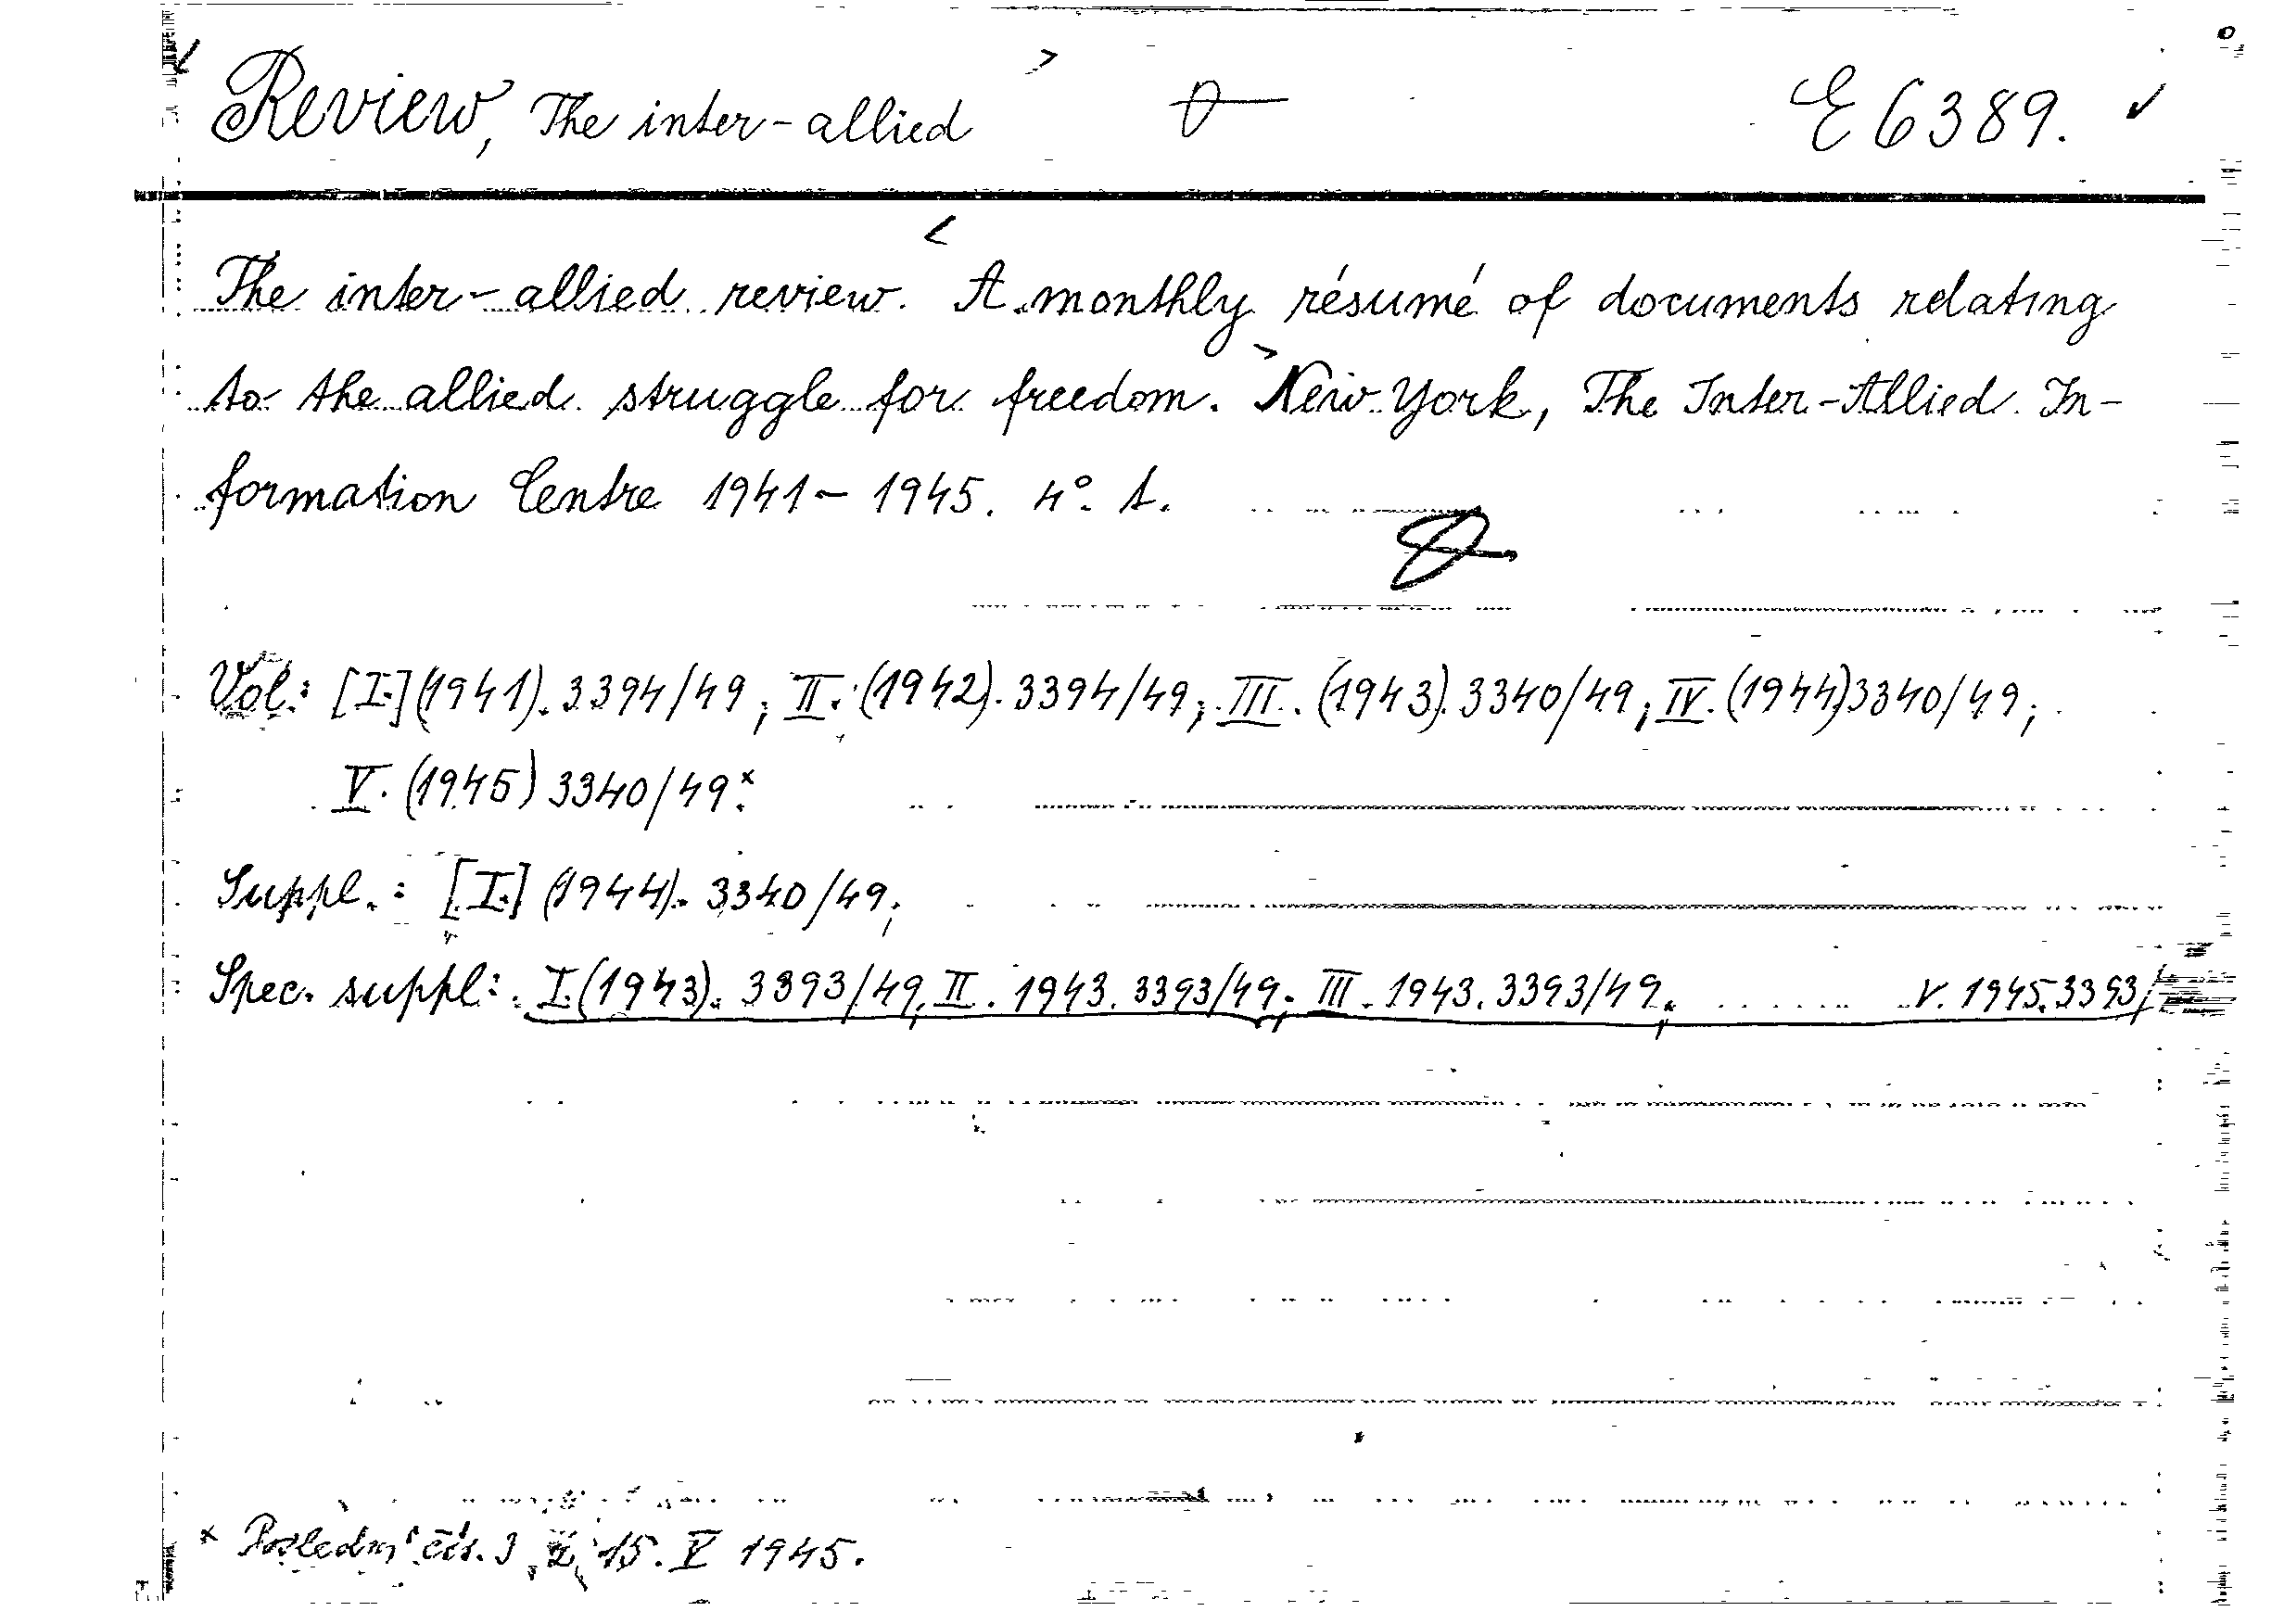 Review, The inter-allied E 6389.
The inter-allied review. A monthly résumé of documents relating
to the allied struggle for freedom. New York, The Inter-Allied In-
formation Centre 1941-1945. 4°. t.
Vol.: [I.] (1941). 3394/49; II. (1942). 3394/49; III. (1943). 3340/49; IV. (1944) 3340/49;
V. (1945) 3340/49.x
Suppl.: [I.] (1944). 3340/49;
Spec. suppl: I. (1943). 3393/49, II. 1943. 3393/49; III. 1943. 3393/49; V. 1945. 3393/
x Poslední čís. 9 z 15. V 1945.